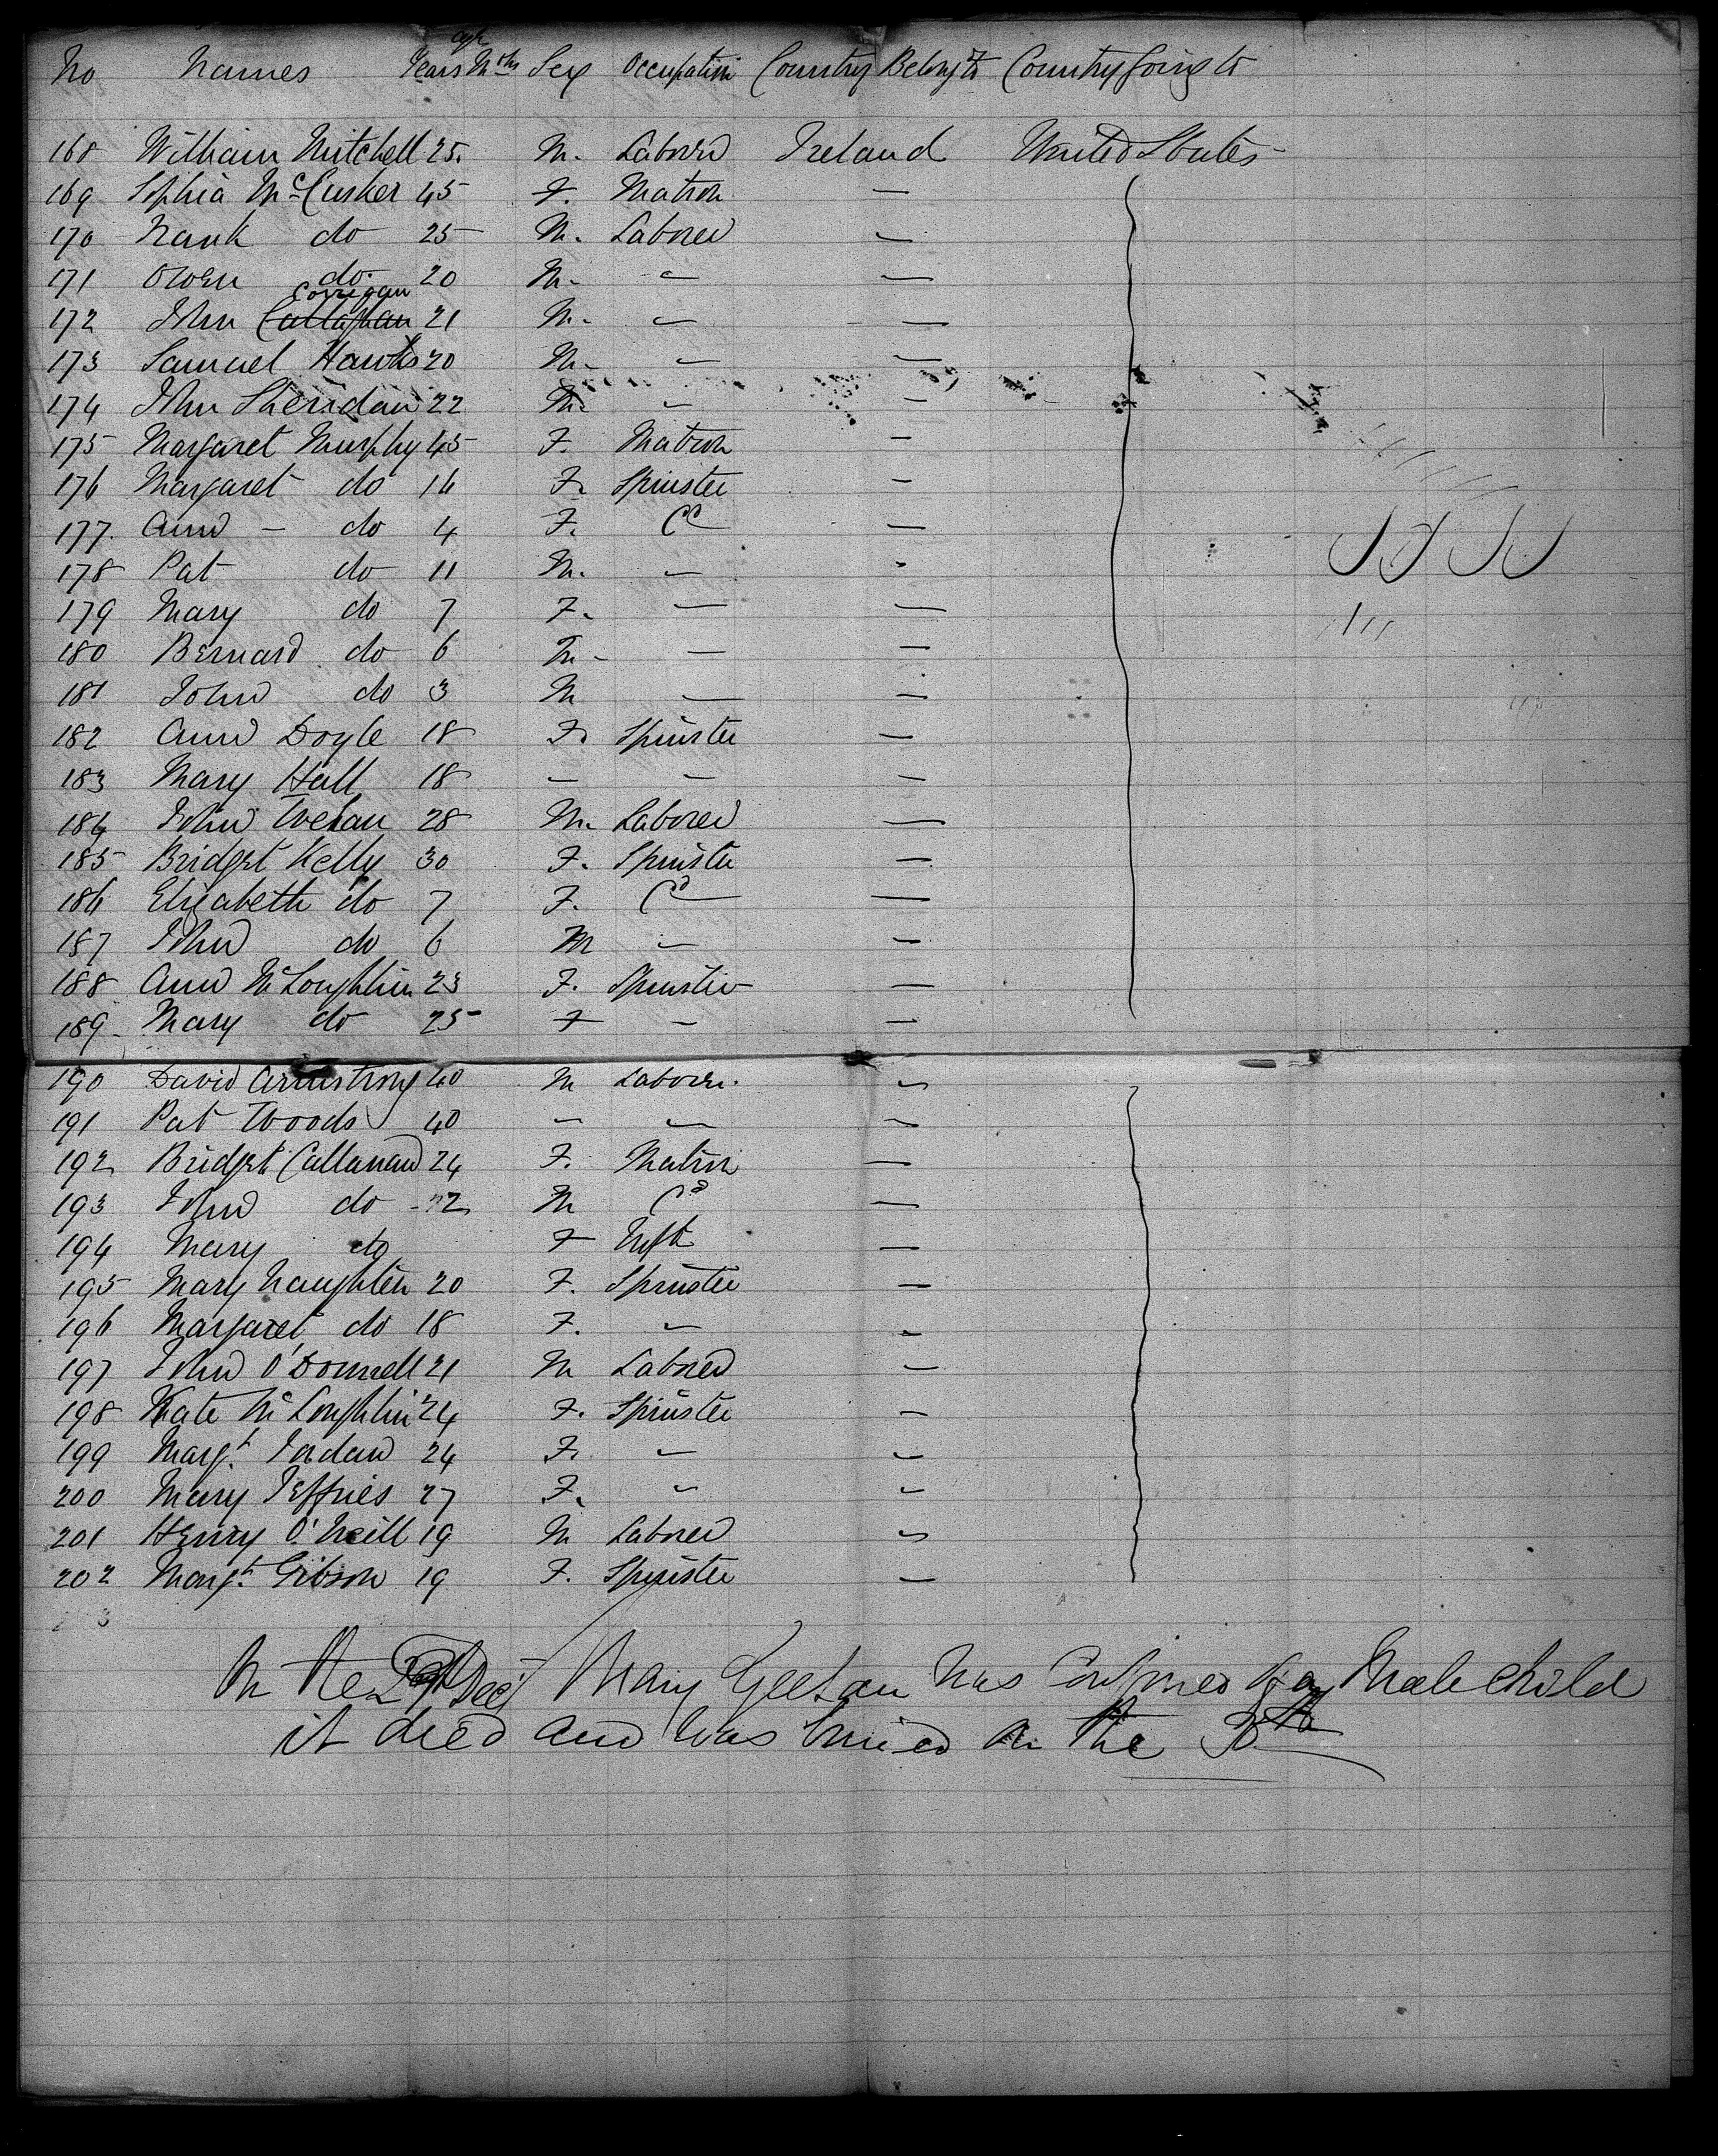 No Names Age Years Mths Sex Occupation Country Belong to Country going to
168 William Mitchell 25 M. Laborer Ireland United States
169 Sophia McCusker 45 F. Matron —
170 Frank do 25 M. Laborer —
171 Owen do. 20 M. — —
172 John Callaghan Corrigan 21 M. — —
173 Samuel Hawks 20 M. — —
174 John Sheridan 22 M. — —
175 Margaret Murphy 45 F. Matron —
176 Margaret do 16 F. Spinster —
177. Ann — do 4 F. Cd —
178 Pat do 11 M. — -
179 Mary do 7 F. — —
180 Bernard do 6 M - — —
181 John do 3 M — —
182 Ann Doyle 18 F. Spinster —
183 Mary Hall 18 — — —
184 John 28 M. Laborer —
185 Bridget Kelly 30 F. Spinster —
186 Elizabeth do 7 F. Cd —
187 John do 6 M — —
188 Ann McLoughlin 23 F. Spinster —
189 Mary do 25 F — —
190 David Armstrong 40 M Laborer. —
191 Pat Woods 40 — — —
192 Bridget Callanan 24 F. Matron —
193 John do 2 M Cd —
194 Mary do F Inft —
195 Mary Naughten 20 F. Spinster —
196 Margaret do 18 F. — —
197 John O'Donnell 21 M Laborer —
198 Kate McLoughlin 24 F. Spinster —
199 Margt. Jordan 24 F. — —
200 Mary Jeffries 27 F. — —
201 Henry O'Neill 19 M Laborer —
202 Margt. Gibson 19 F. Spinster —
On the Dec Mary was Confined of a Male child
it died and was buried on the